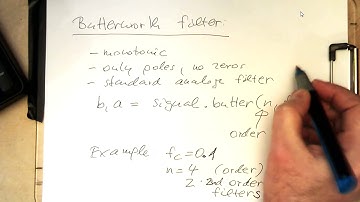 Butterworth filter:
- monotonic
- only poles, no zeros
- standard analogue filter
b, a = signal.butter(n,
order
Example fc=0.1
n=4 (order)
2 · 2nd order
filters